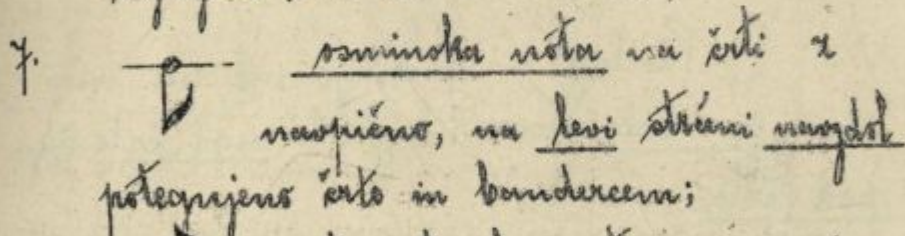 7. osminska nóta na črti z
navpično, na levi stráni navzdol
pótegnjeno črto in bandercem;